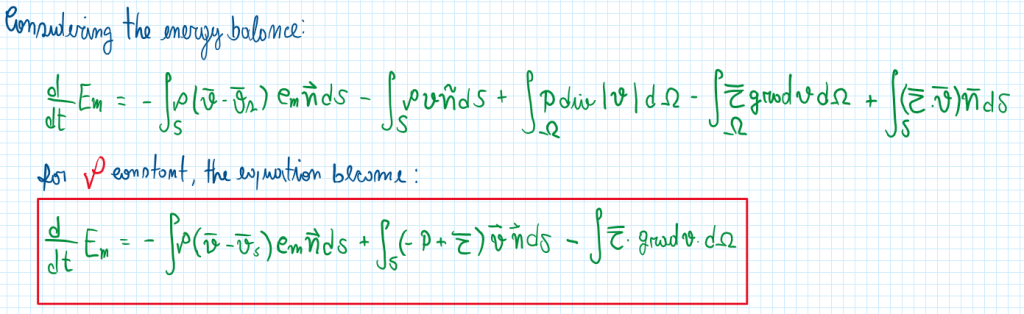 Considering the energy balance:
d/dt Em = - ∫_S ρ(v̄-v̄_s) em n⃗ ds - ∫_S p v ñ ds + ∫_Ω p div |v| dΩ - ∫_Ω τ̿ grad v dΩ + ∫_S (τ̿·v̄) n̄ ds
for ρ constant, the equation become:
d/dt Em = - ∫ρ(v̄-v̄_s) em n⃗ ds + ∫_S (-p+τ̿) v⃗ n⃗ ds - ∫ τ̿· grad v· dΩ